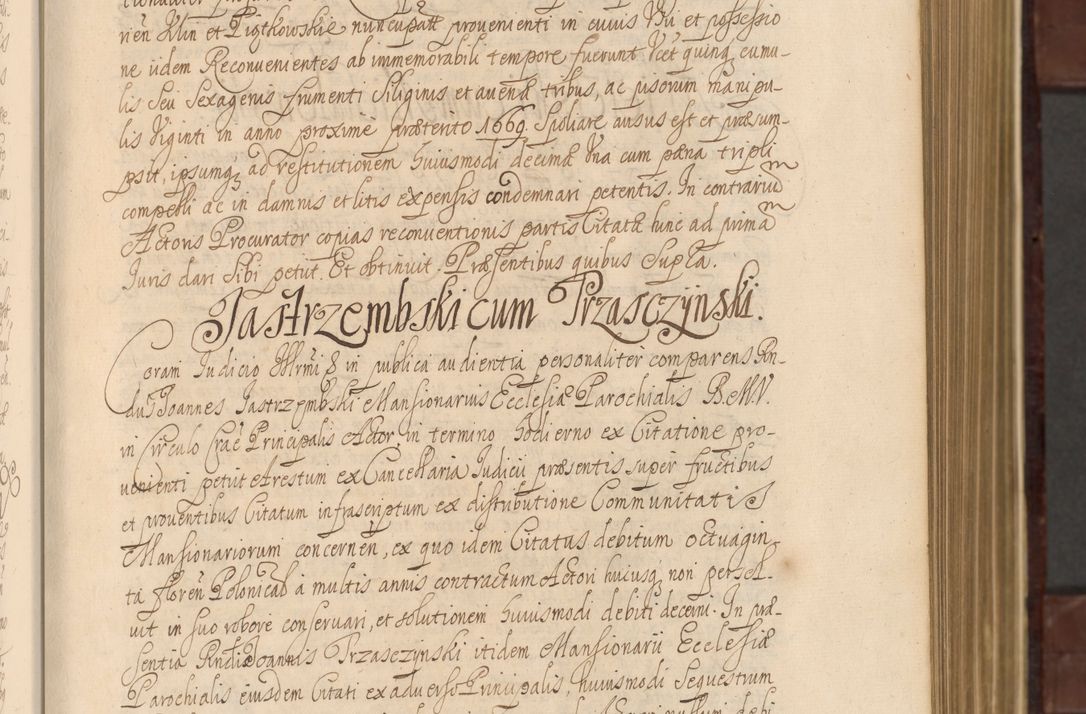 rien Klin et Piątkowskie nuncupatt provenienti in cuius Usu et possessio
ne iidem Reconvenientes ab immemorabili tempore fuerunt Ucet quinq cumu-
lis seu Sexagenis frumenti Siliginis et avenæ tribus, ac pisorum manipu-
lis Viginti in anno proximè præterito 1669. Spoliare ausus est et præsum-
psit, ipsumq ad restitutionem huiusmodi decimæ Una cum pæna tripli
compelli ac in damnis et litis expensis condemnari petentis. In contrarium
Actoris Procurator copias reconventionis partis Citatæ hunc ad primam
Juris dari Sibi petut. Et obtinuit. Præsentibus quibus Supra.
Jastrzembski cum Trzasczynski.
Coram Judicio Illrmi S in publica audientia personaliter comparens Rn-
dus Joannes Jastrzembski Mansionarius Ecclesiæ Parochialis B.M.V.
in Circulo Crac Principalis Actor in termino hodierno ex Citatione pro-
venienti petut Arestum ex Cancellaria Judicii præsentis super fructibus
et proventibus Citatum infrascriptum ex distributione Communitatis
Mansionariorum concernen, ex quo idem Citatus debitum octuagin
ta floren Polonical à multis annis contractum Actori hucusq non persol-
vit in suo robore conservari, et solutionem huiusmodi debiti decerni. In præ-
sentia Rndi Joannis Trzasczynski itidem Mansionarii Ecclesiæ
Parochialis eiusdem Citati ex adverso Principalis, huiusmodi Sequestrum